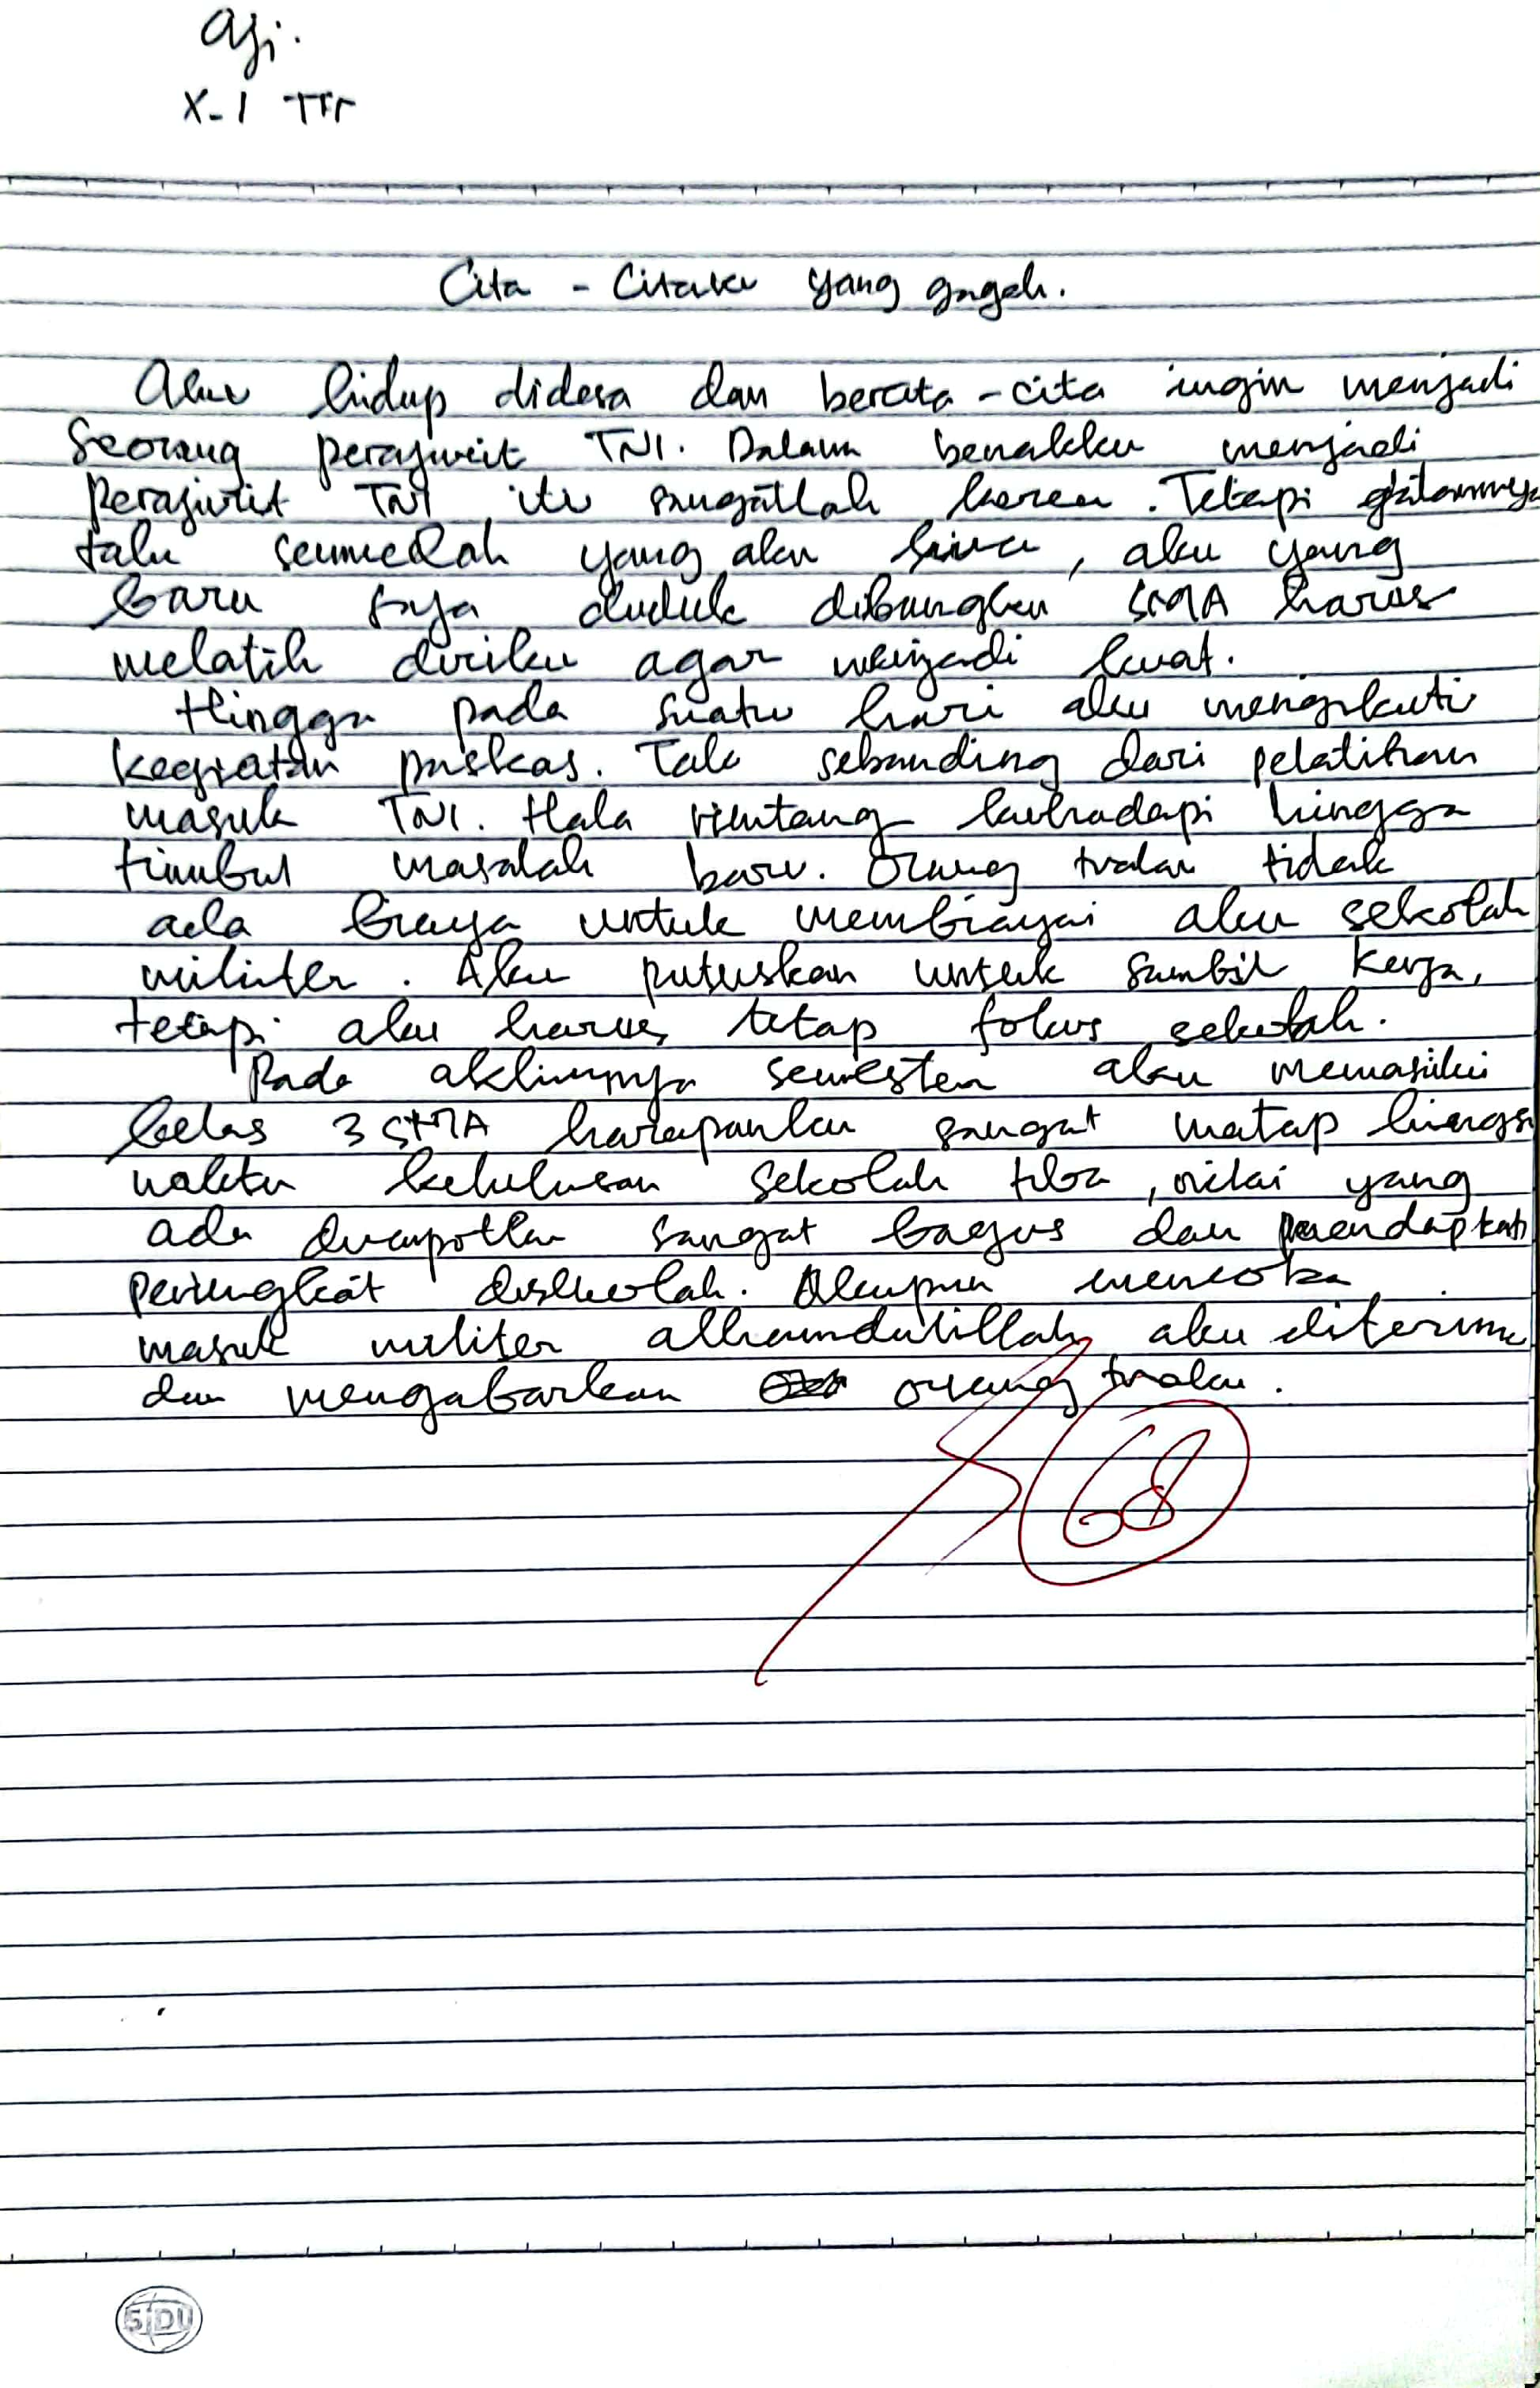 Aji.
X-1 TTr
Cita - Citaku yang gagah.
Aku hidup didesa dan bercita-cita ingin menjadi
Seorang perajurit TNI. Dalam benakku menjadi
Perajurit TNI itu sangatlah keren. Tetapi
tak semudah yang aku kira, aku yang
baru saja duduk dibangku SMA harus
melatih diriku agar menjadi kuat.
Hingga pada suatu hari aku mengikuti
kegiatan paskas. Tak sebanding dari pelatihan
masuk TNI. Hala rintang kuhadapi hingga
timbul masalah baru. Orang tuaku tidak
ada biaya untuk membiayai aku sekolah
militer. Aku putuskan untuk sambil kerja,
tetapi aku harus tetap fokus sekolah.
Pada akhirnya semester aku memasuki
kelas 3 SMA harapanku sangat matap hingga
waktu kelulusan sekolah tiba, nilai yang
ada dirapotku sangat bagus dan mendapkati
peringkat disekolah. Akupun mencoba
masuk militer alhamdulillah aku diterima
dan mengabarkan orang tuaku.
68
SiDU